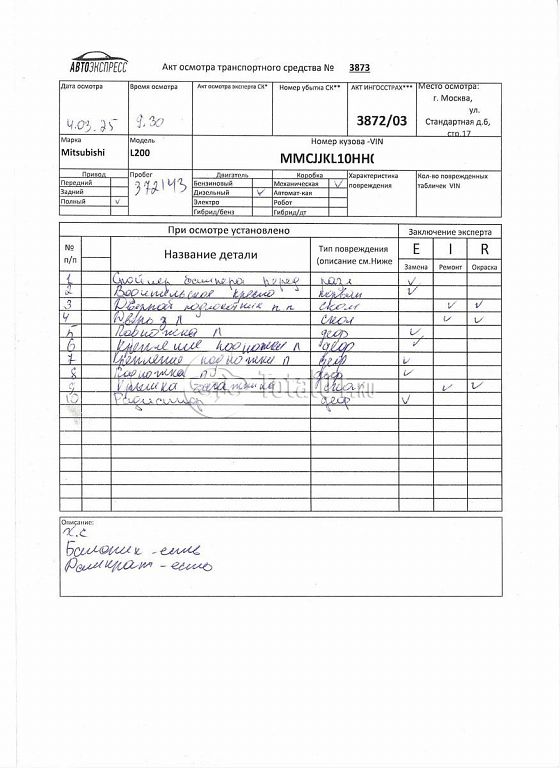 АВТОЭКСПРЕСС
Акт осмотра транспортного средства № 3873
Дата осмотра Время осмотра Акт осмотра эксперта СК* Номер убытка СК** АКТ ИНГОССТРАХ*** Место осмотра:
4.03.25 9.30 3872/03 г. Москва, ул. Стандартная д.6, стр.17
Марка Модель Номер кузова -VIN
Mitsubishi L200 MMCJJKL10HH(
Привод Пробег Двигатель Коробка Характеристика повреждения Кол-во поврежденных табличек VIN
Передний 372143 Бензиновый Механическая ✓
Задний Дизельный ✓ Автомат-кая
Полный ✓ Электро Робот
Гибрид/бенз Гибрид/дт
При осмотре установлено Заключение эксперта
№ п/п Название детали Тип повреждения (описание см.Ниже E I R
Замена Ремонт Окраска
1 Спойлер бампера перед ✓
2 Водительское кресло порван ✓
3 скол ✓ ✓
4 скол ✓ ✓
5 Подножка Л деф ✓
6 Крепление подножки Л деф ✓
7 Крепление подножки П деф ✓
8 Подножка П деф ✓
9 Крышка ✓ ✓
10 деф ✓
Total.ru
Описание:
Х.С
Балоник -есть
Домкрат -есть